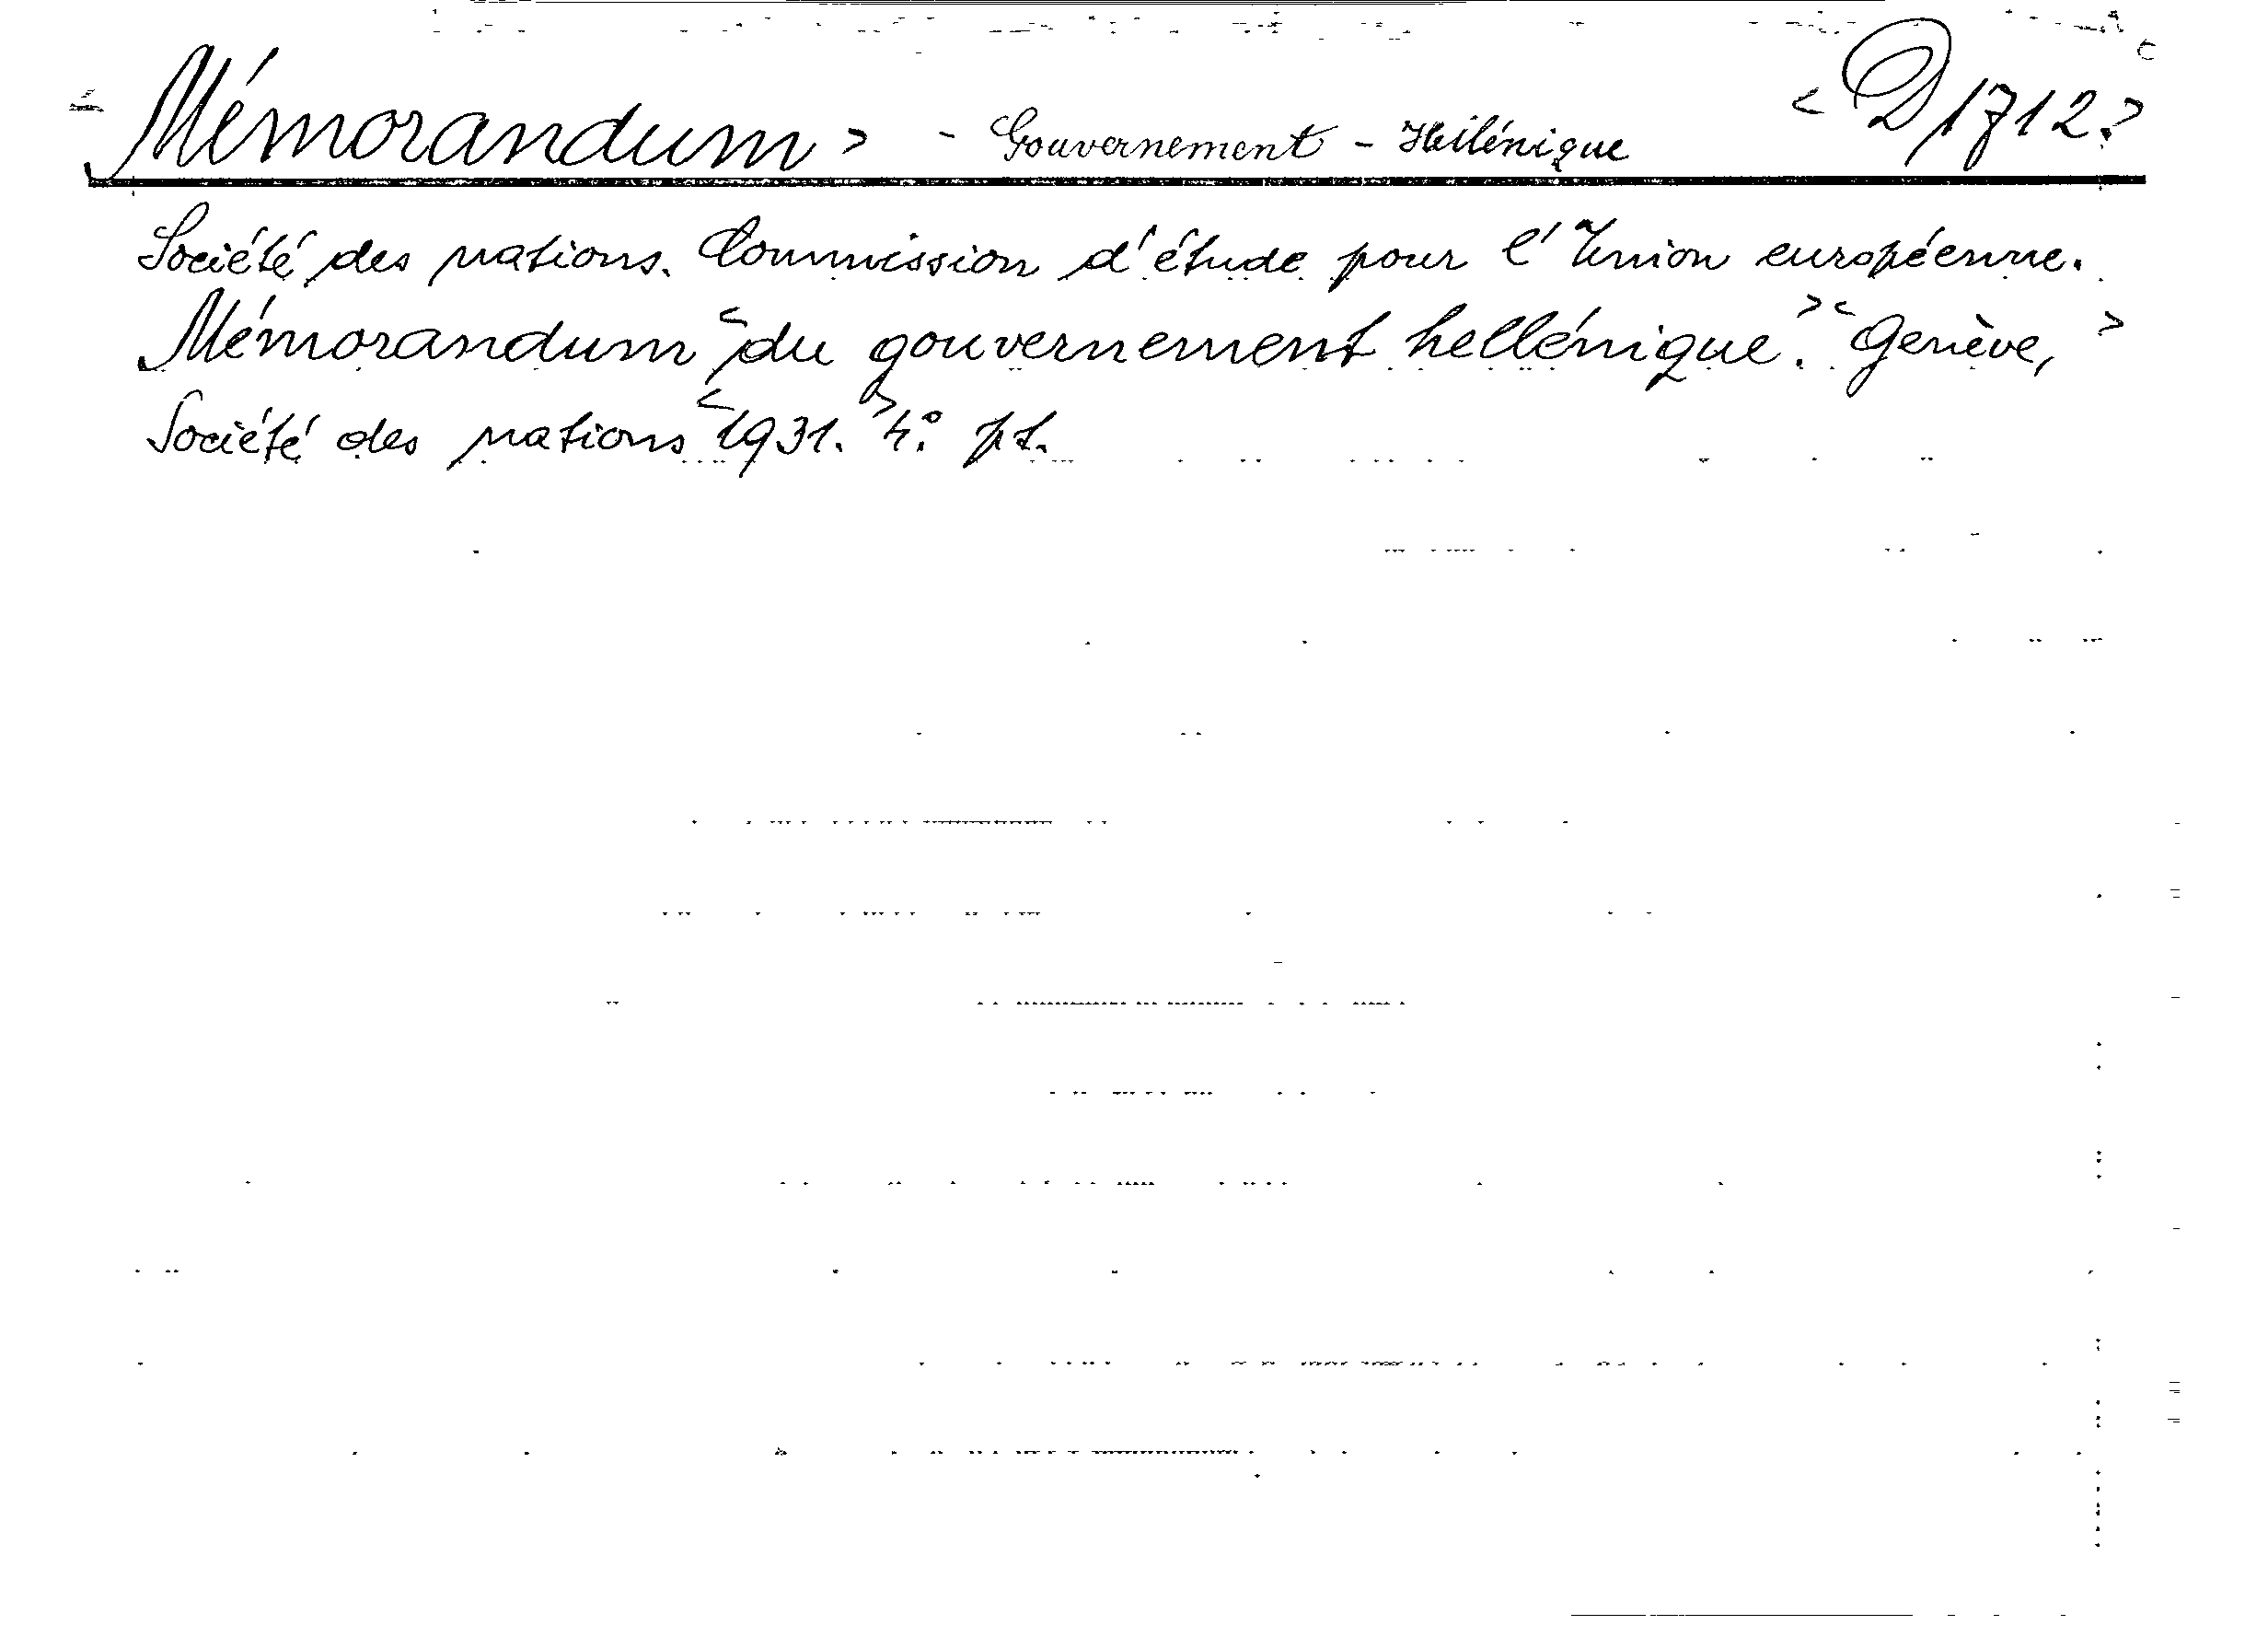 < Mémorandum > - Gouvernement - Hellénique < D 1712 >
Société des nations. Commission d'étude pour l'Union européenne.
Mémorandum < du gouvernement hellénique. > < Genève, >
Société des nations < 1931. > 4° pt.